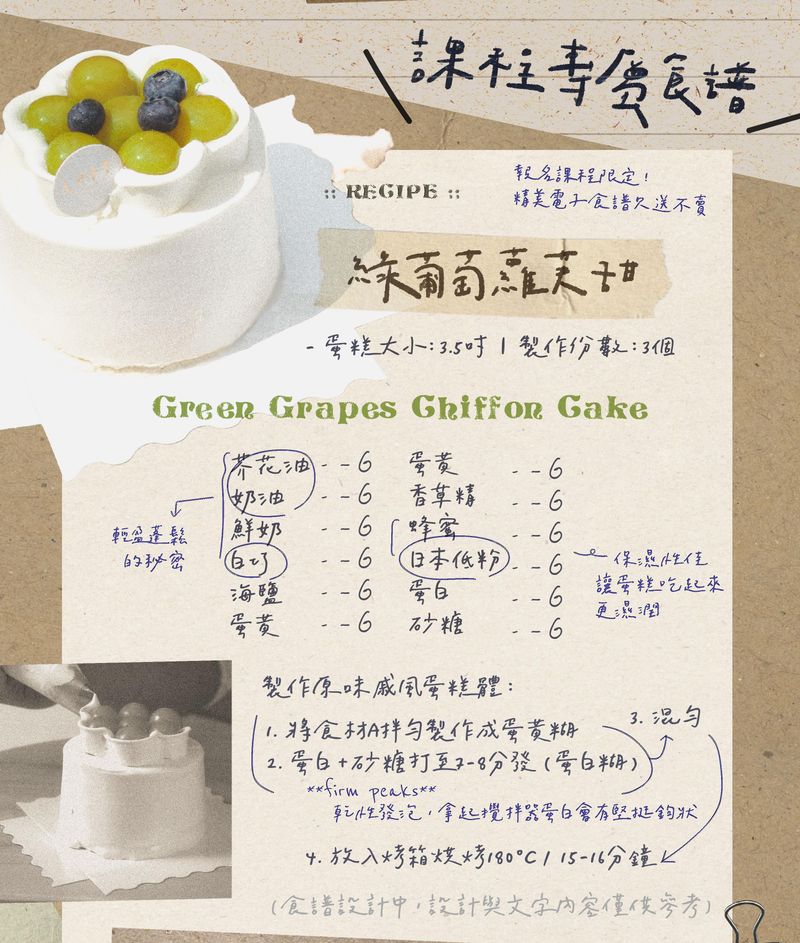 課程專價食譜
報名課程限定！
精美電子食譜只送不賣
:: RECIPE ::
綠葡萄蘿芙甜
- 蛋糕大小：3.5吋 | 製作份數：3個
Green Grapes Chiffon Cake
芥花油 - - G
奶油 - - G
鮮奶 - - G
白巧 - - G
海鹽 - - G
蛋黃 - - G
輕盈蓬鬆
的秘密
蛋黃 - - G
香草精 - - G
蜂蜜 - - G
日本低粉 - - G
蛋白 - - G
砂糖 - - G
保濕性佳
讓蛋糕吃起來
更濕潤
製作原味戚風蛋糕體：
1. 將食材A拌勻製作成蛋黃糊
2. 蛋白+砂糖打至7-8分發（蛋白糊）
**firm peaks**
乾性發泡，拿起攪拌器蛋白會有堅挺鉤狀
3. 混勻
4. 放入烤箱烘烤180°C / 15-16分鐘
（食譜設計中，設計與文字內容僅供參考）